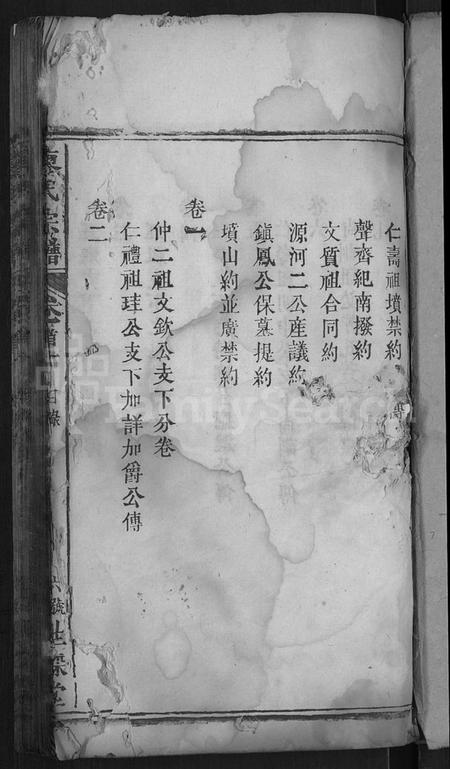 仁壽祖墳禁約
聲齊紀南撥約
文質祖合同約
源河二公產議約
鎮鳳公保墓提約
墳山約並廣禁約
卷一
仲二祖文欽公支下分卷
仁禮祖珪公支下加詳加爵公傳
卷二
氏宗譜
卷首
目錄
FamilySearch